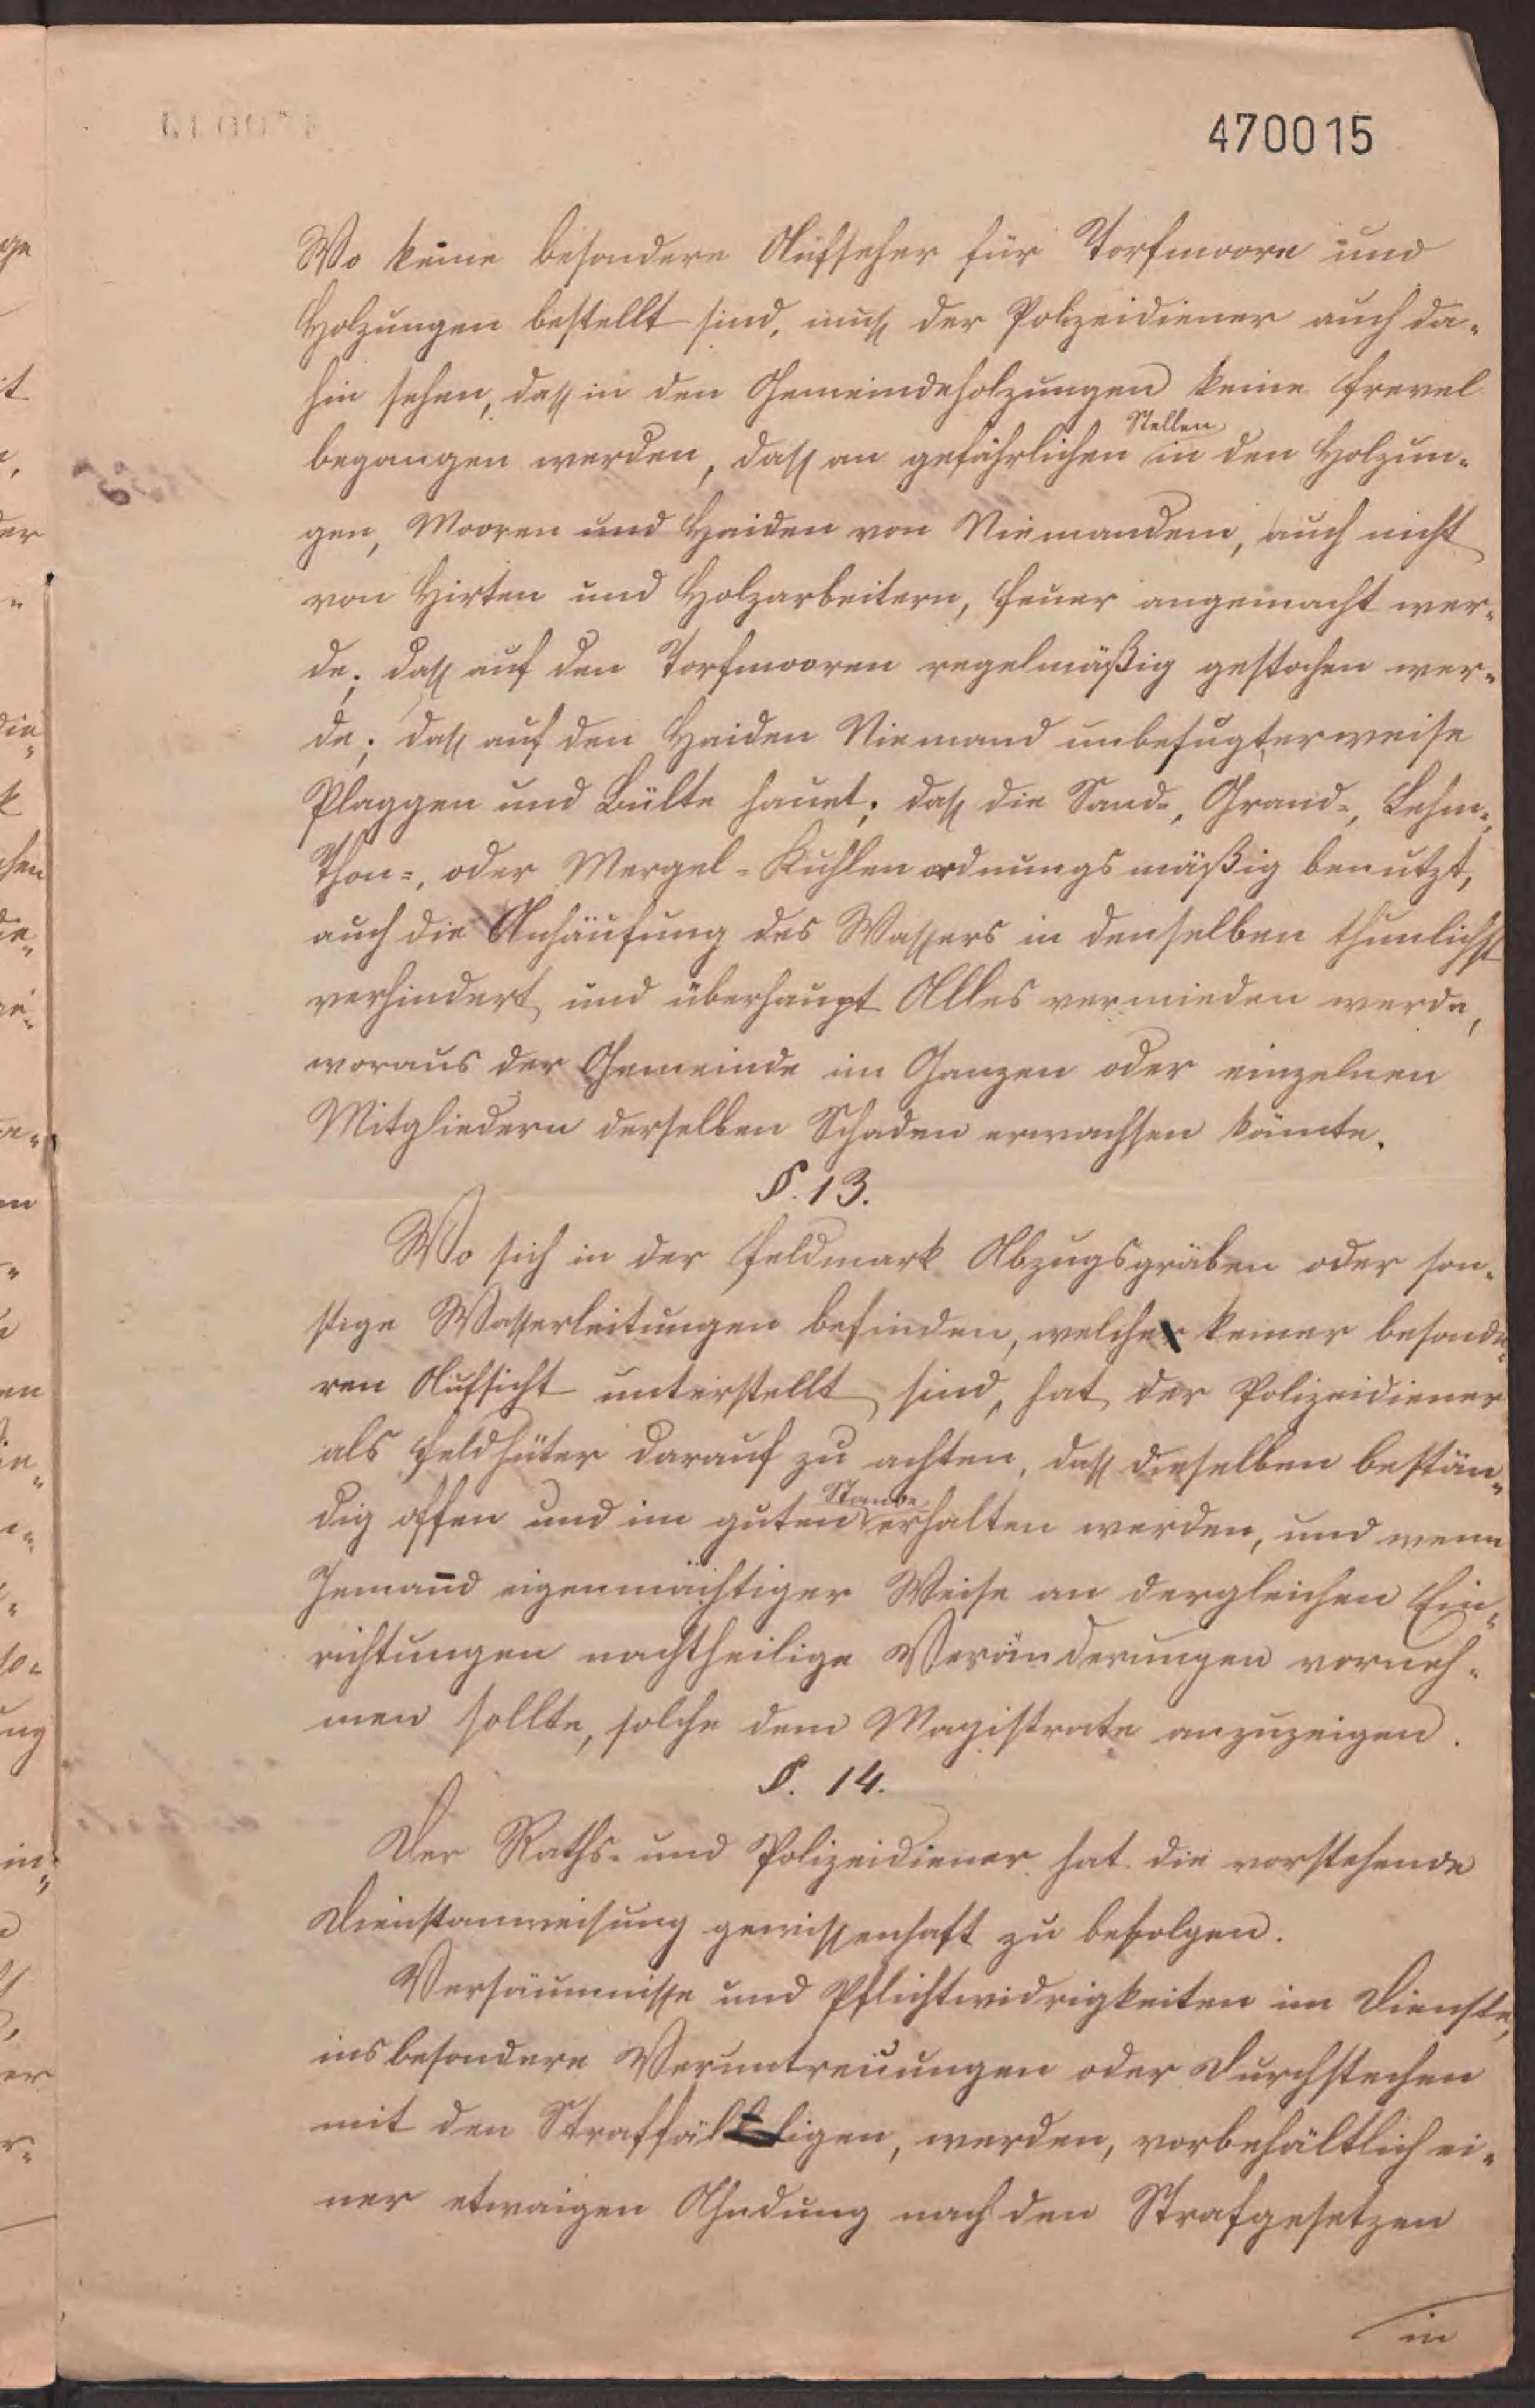 470015
Wo keine besondere Aufseher für Torfmoore und
Holzungen bestellt sind, muß der Polizeidiener auch da-
hin sehen, daß in den Gemeindeholzungen keine Frevel
begangen werden, daß an gefährlichen Stellen in den Holzun-
gen, Mooren und Haiden von Niemandem, auch nicht
von Hirten und Holzarbeitern, Feuer angemacht wer-
de; daß auf den Torfmooren regelmäßig gestochen wer-
de; daß auf den Haiden Niemand unbefugterweise
Plaggen und Bülte hauet; daß die Sand-, Grand-, Lehm-,
Thon-, oder Mergel-Kuhlen ordnungsmäßig benutzt,
auch die Anhäufung des Wassers in denselben thunlichst
verhindert und überhaupt Alles vermieden werde,
woraus der Gemeinde im Ganzen oder einzelnen
Mitgliedern derselben Schaden erwachsen könnte.
§. 13.
Wo sich in der Feldmark Abzugsgräben oder son-
stige Wasserleitungen befinden, welche keiner besonde-
ren Aufsicht unterstellt sind, hat der Polizeidiener
als Feldhüter darauf zu achten, daß dieselben bestän-
dig offen und im guten Stande erhalten werden, und wenn
Jemand eigenmächtiger Weise an dergleichen Ein-
richtungen nachtheilige Veränderungen vorneh-
men sollte, solche dem Magistrate anzuzeigen.
§. 14.
Der Raths- und Polizeidiener hat die vorstehende
Dienstanweisung gewissenhaft zu befolgen.
Versäumnisse und Pflichtwidrigkeiten im Dienste,
insbesondere Veruntreuungen oder Durchstechen
mit den Straffälligen, werden, vorbehältlich ei-
ner etwaigen Ahndung nach den Strafgesetzen
in